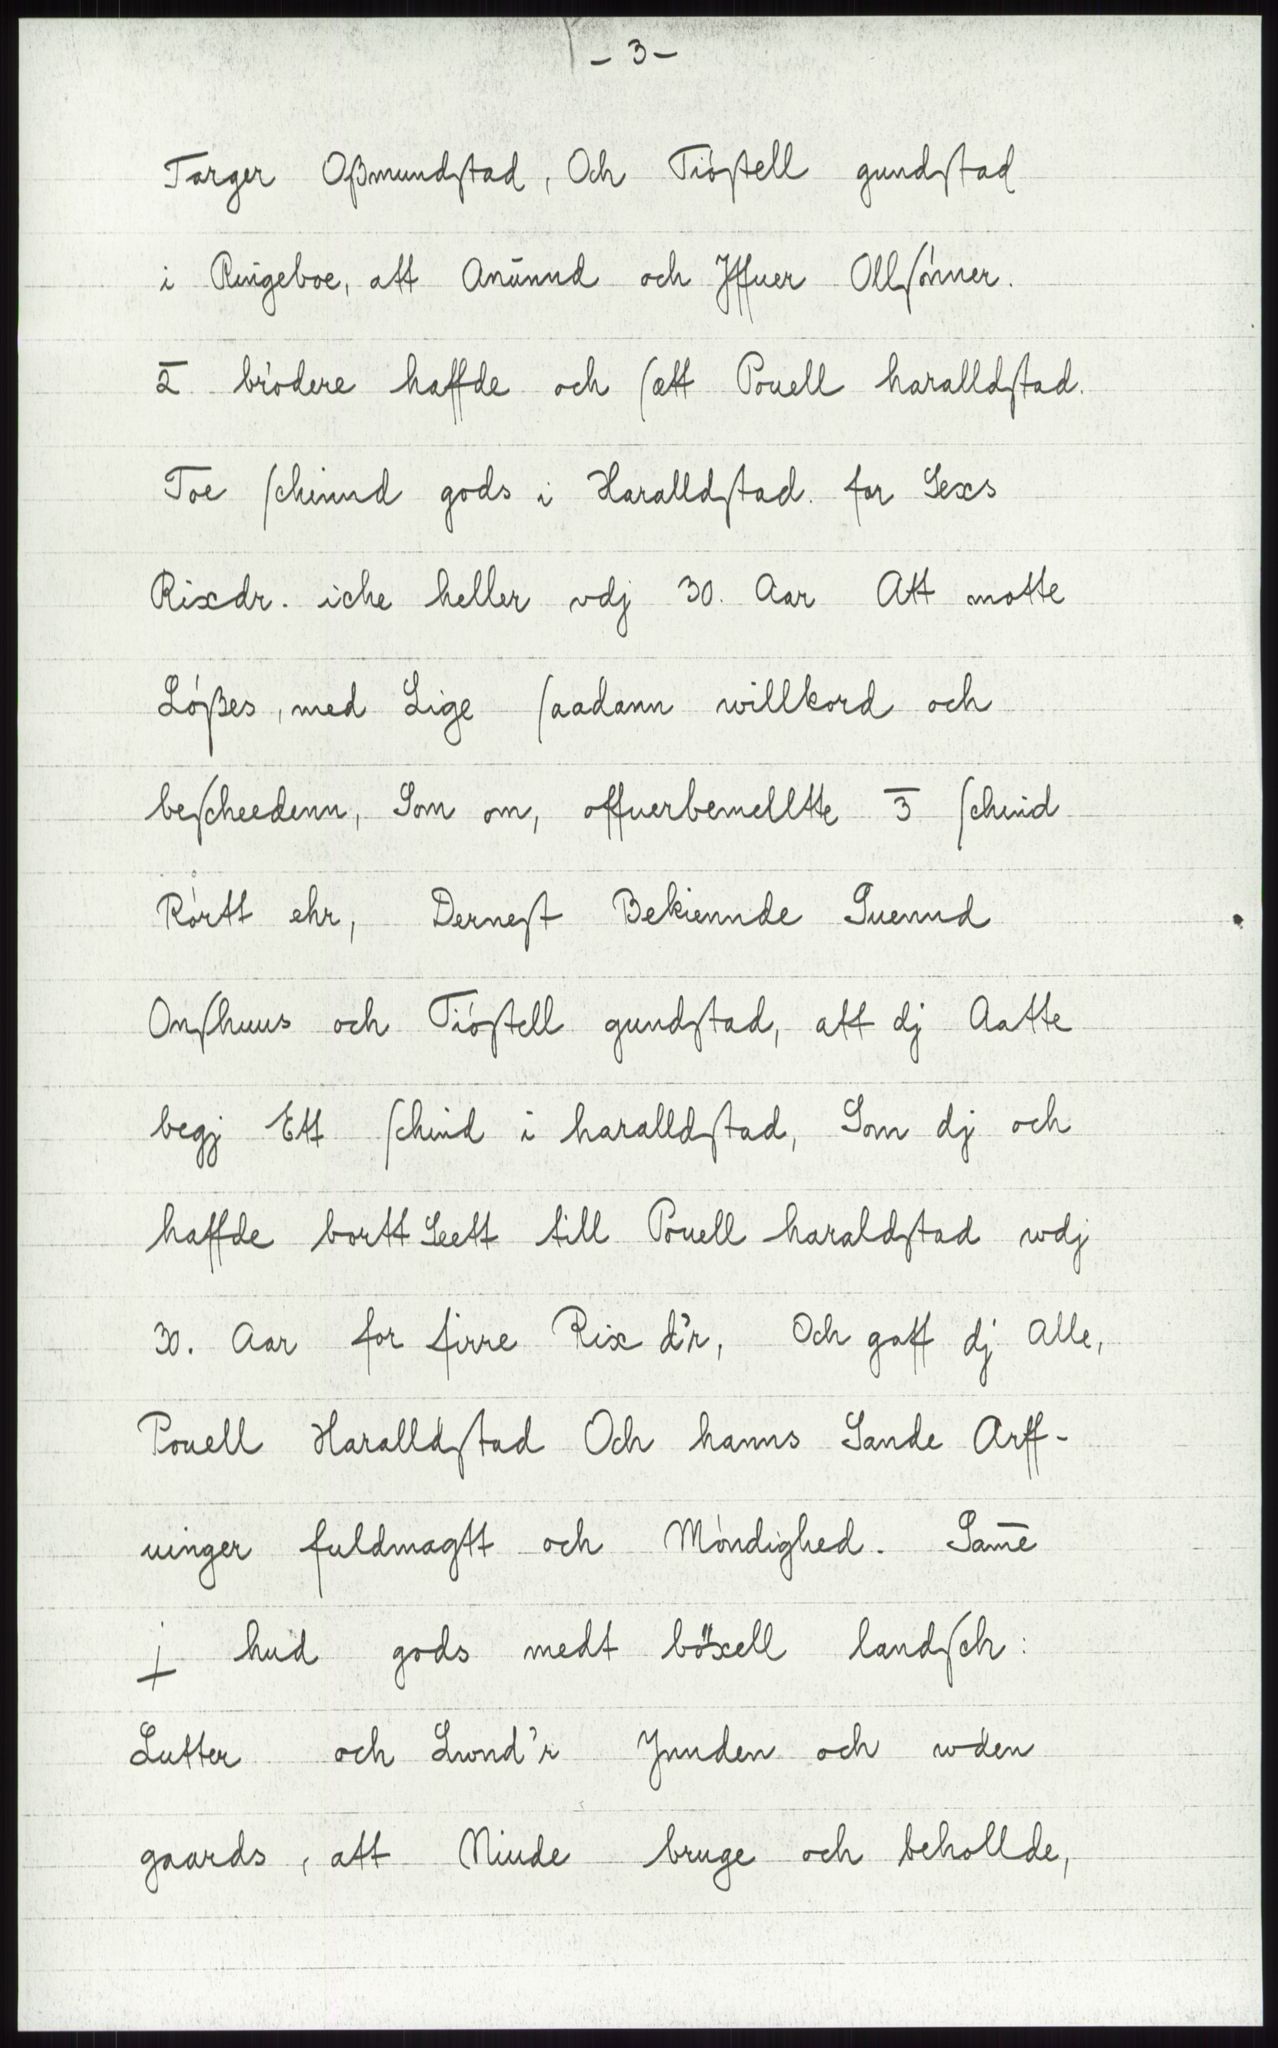 - 3 -
Targer Oßmundstad, Och Tióstell gundstad
i Ringeboe, att Anunnd och Jffuer Ollsónner.
2 bródere haffde och sætt Pouell haralldstad.
Toe schinnd gods i Haralldstad. for Sexs
Rixdr. iche heller vdj 30. Aar Att motte
Lóßes, med Lige saadann willkord och
bescheedenn, Som om, offuerbemellte 3 schind
Rórtt ehr, Dernest Bekiennde Suennd
Onshuus och Tióstell gundstad, att dj Aatte
begj Ett schind i haralldstad, Som dj och
haffde bortt Sett till Pouell haraldstad wdj
30. Aar for firre Rix d'r, Och gaff dj Alle,
Pouell Haralldstad Och hanns Sande Arff-
uinger fuldmagtt och Móndighed. Samē
j hud gods medt böxell landsch:
Lutter och Lwnd'r Jnnden och wden
gaards, att Niude bruge och behollde,